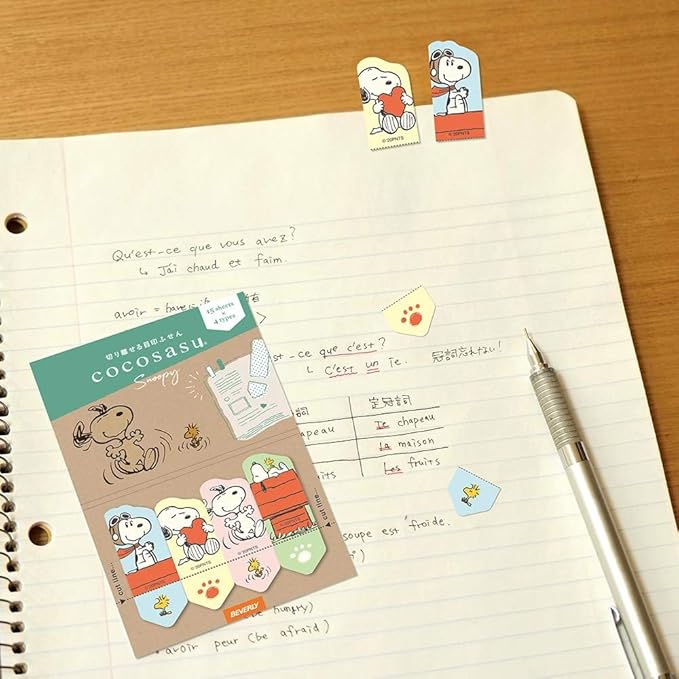 ©'20PNTS
©'20PNTS
Qu'est-ce que vous avez?
↳ J'ai chaud et faim.
avoir =
有
15 sheets
×
4 types
切り離せる目印ふせん
cocosasu®
Snoopy
-ce que c'est?
↳ c'est un
冠詞忘れない!
定冠詞
詞
le chapeau
apeau
La maison
Les fruits
soupe est froide.
cut line
cut line
©'20PNTS
©'20PNTS
©'20PNTS
©'20PNTS
BEVERLY
hungry)
• avoir peur (be afraid)